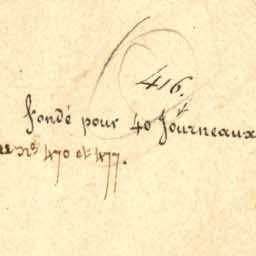 416.
fondé pour 40 Journeaux
nos 470 et 477.